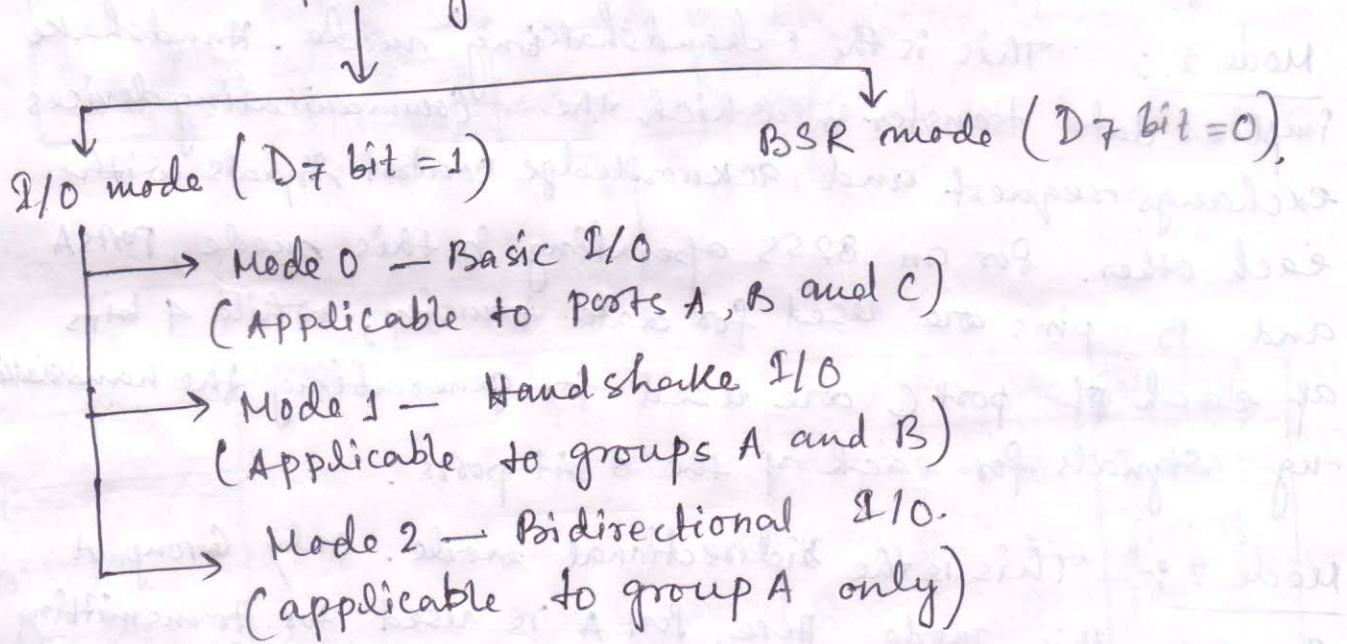 I/O mode (D7 bit = 1)
BSR mode (D7 bit = 0).
Mode 0 — Basic I/O
(Applicable to ports A, B and C)
Mode 1 — Handshake I/O
(Applicable to groups A and B)
Mode 2 — Bidirectional I/O.
(applicable to group A only)